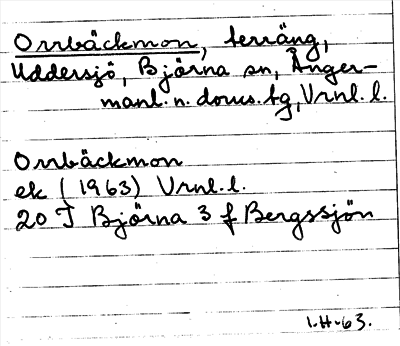 Orrbäckmon, terräng,
Uddersjö, Björna sn, Ånger-
manl. n. doms. tg, Vrnl. l.
Orrbäckmon
ek (1963) Vrnl. l.
20 J Björna 3 f Bergssjön
1.H-63.